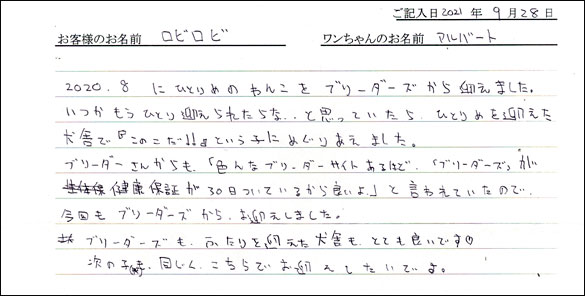 ご記入日2021年 9月28日
お客様のお名前 ロビロビ ワンちゃんのお名前 アルバート
2020.8 にひとりめのわんこを ブリーダーズから迎えました。
いつかもうひとり迎えられたらな、と思っていたら、ひとりめを迎えた
犬舎で『このこだ!!』という子にめぐりあえました。
ブリーダーさんからも、「色んなブリーダーサイトあるけど、「ブリーダーズ」が
健康保証が30日ついているから良いよ」と言われていたので、
今回もブリーダーズから、お迎えしました。
ブリーダーズも、ふたりを迎えた犬舎も、とても良いです♡
次の子も、同じく、こちらでお迎えしたいです。